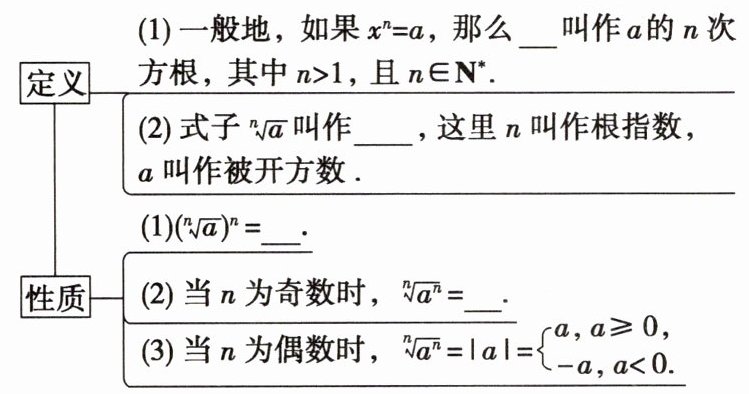 (1) 一般地，如果 xⁿ=a，那么___叫作 a 的 n 次
方根，其中 n>1，且 n∈N*.
定义
(2) 式子 ⁿ√a 叫作____，这里 n 叫作根指数，
a 叫作被开方数.
(1)(ⁿ√a)ⁿ=___.
性质
(2) 当 n 为奇数时，ⁿ√aⁿ=___.
(3) 当 n 为偶数时，ⁿ√aⁿ=|a|={a, a≥0,
-a, a<0.